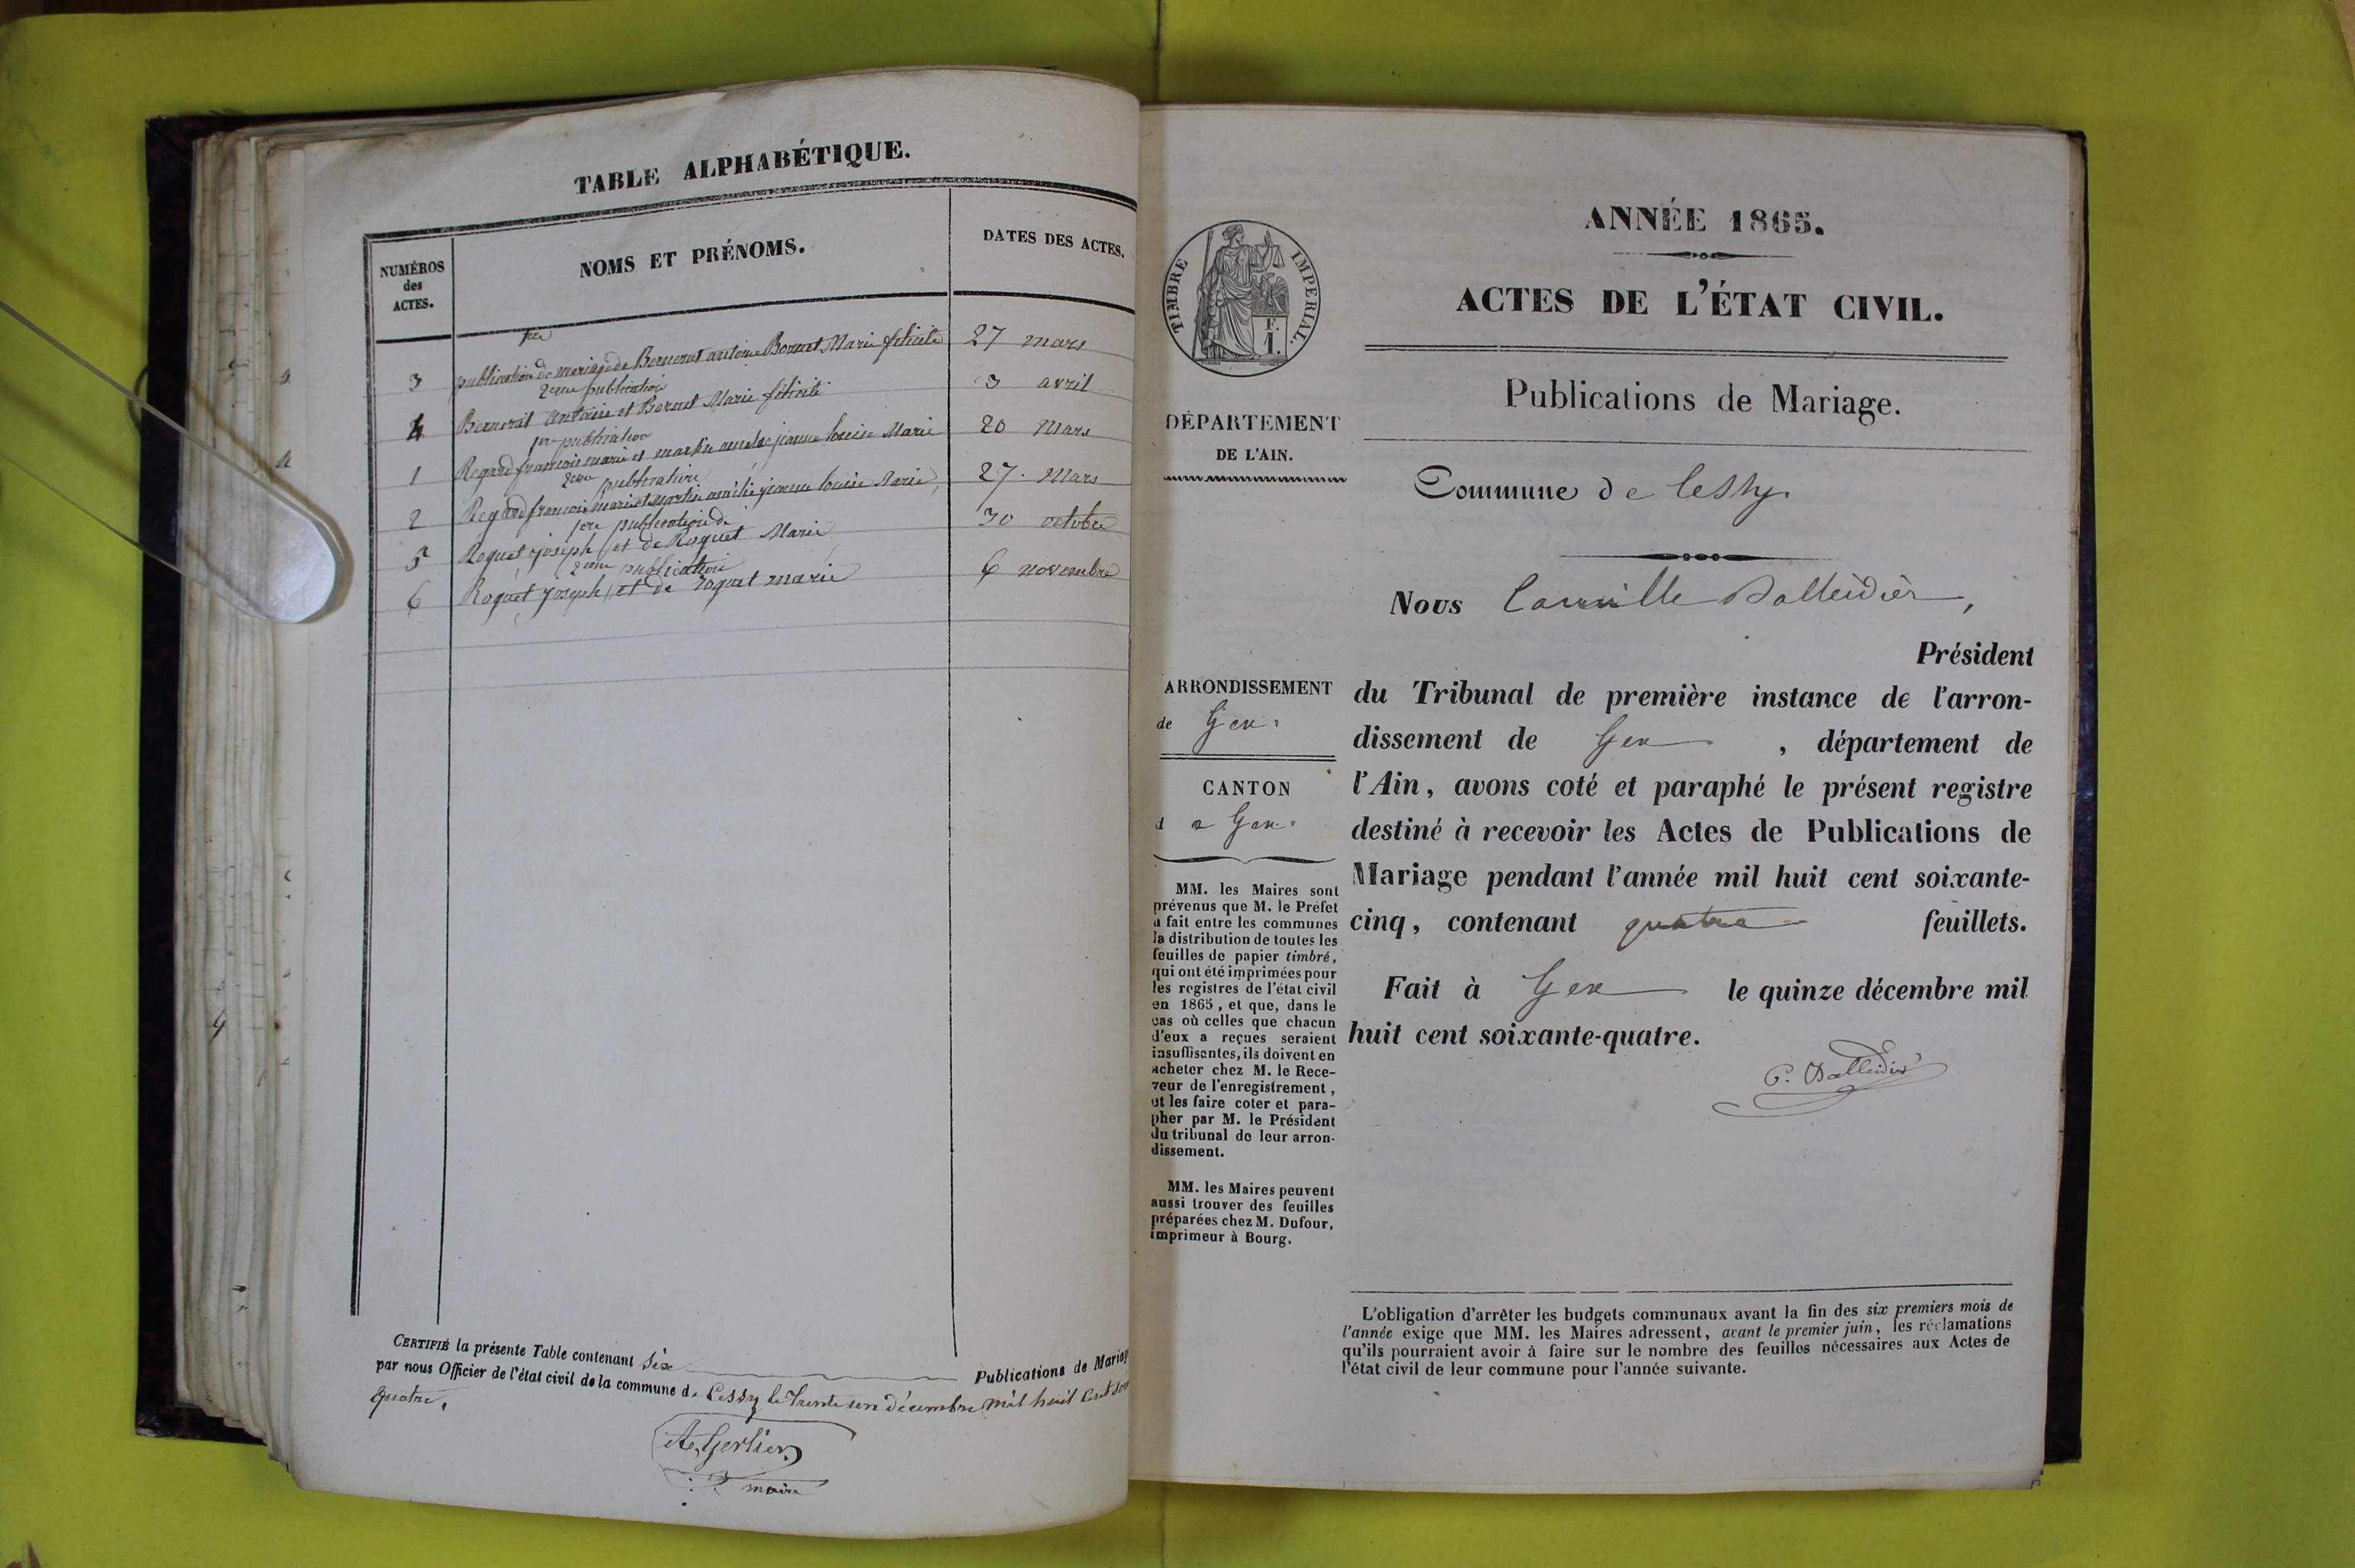 TABLE ALPHABÉTIQUE.
NUMÉROS
des
ACTES.
NOMS ET PRÉNOMS.
DATES DES ACTES.
1re
3 publication de mariage de antoine Bornet Marie félicité 27 mars
2eme publication
4 antoine et Bornet Marie félicité 3 avril
1re publication
1 Regard françois marie et martin amélie jeanne louise Marie 20 Mars
2eme publication
2 Regard françois marie et martin amélie jeanne louise Marie, 27. Mars
1ere publication de
5 Roquet joseph et de Roquet Marie 30 octobre
2eme publication
6 Roquet joseph et de roquet marie 6 novembre
CERTIFIÉ la présente Table contenant Six Publications de Mariag
par nous Officier de l'état civil de la commune de Cessy le Trente un décembre mil huit cent soi
quatre,
Ae. Gerlier
maire
ANNÉE 1865.
ACTES DE L'ÉTAT CIVIL.
Publications de Mariage.
Commune de Cessy.
TIMBRE IMPERIAL.
F.
1.
DÉPARTEMENT
DE L'AIN.
ARRONDISSEMENT
de Gex.
CANTON
d e Gex.
MM. les Maires sont
prévenus que M. le Préfet
a fait entre les communes
la distribution de toutes les
feuilles de papier timbré,
qui ont été imprimées pour
les registres de l'état civil
en 1865, et que, dans le
cas où celles que chacun
d'eux a reçues seraient
insuffisantes, ils doivent en
acheter chez M. le Rece-
veur de l'enregistrement,
et les faire coter et para-
pher par M. le Président
du tribunal de leur arron-
dissement.
MM. les Maires peuvent
aussi trouver des feuilles
préparées chez M. Dufour,
imprimeur à Bourg.
Nous Camille Balleidier,
Président
du Tribunal de première instance de l'arron-
dissement de Gex, département de
l'Ain, avons coté et paraphé le présent registre
destiné à recevoir les Actes de Publications de
Mariage pendant l'année mil huit cent soixante-
cinq, contenant quatre feuillets.
Fait à Gex le quinze décembre mil
huit cent soixante-quatre.
C. Balleidier
L'obligation d'arrêter les budgets communaux avant la fin des six premiers mois de
l'année exige que MM. les Maires adressent, avant le premier juin, les réclamations
qu'ils pourraient avoir à faire sur le nombre des feuilles nécessaires aux Actes de
l'état civil de leur commune pour l'année suivante.